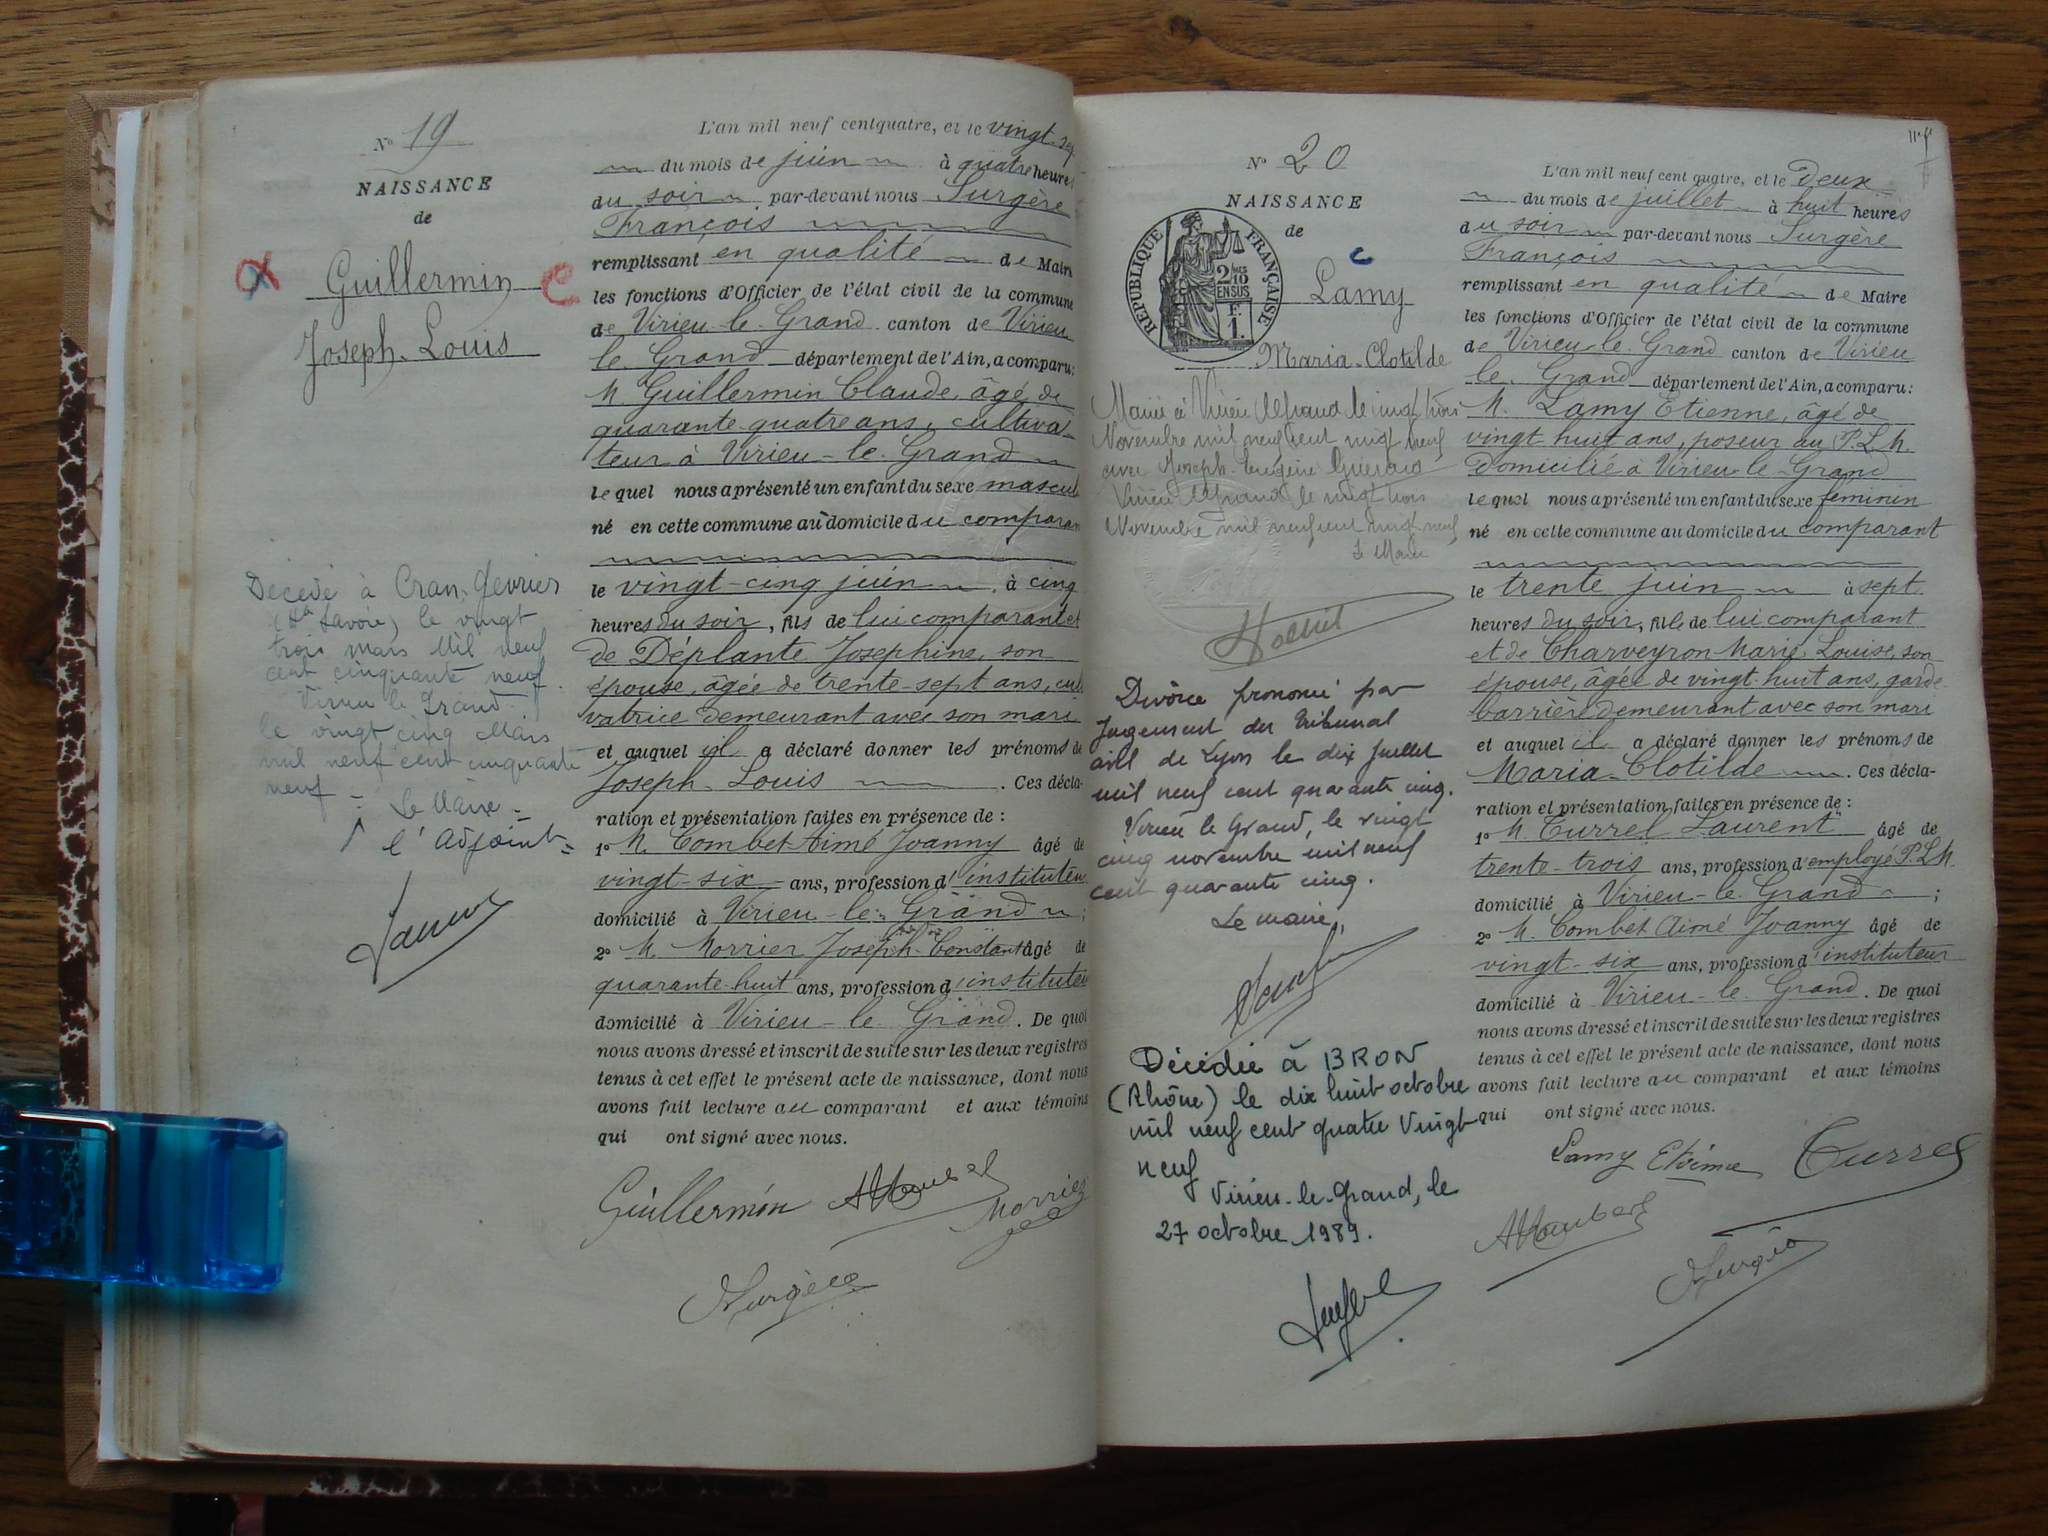 Nº 19
NAISSANCE
de
Guillermin
Joseph-Louis
Décédé à Cran-Gevrier
(Hte Savoie) le vingt
trois mars Mil neuf
cent cinquante neuf.
Virieu le Grand
le vingt cinq Mars
mil neuf cent cinquante
neuf -
Le Maire -
l'Adjoint -
L'an mil neuf cent quatre, et le vingt-sep
du mois de juin à quatre heures
du soir par-devant nous Surgère
François
remplissant en qualité de Maire
les fonctions d'Officier de l'état civil de la commune
de Virieu-le-Grand canton de Virieu
le-Grand département de l'Ain, a comparu:
M. Guillermin Claude, âgé de
quarante-quatre ans, cultiva-
teur à Virieu-le-Grand
lequel nous a présenté un enfant du sexe mascul
né en cette commune au domicile du comparan
le vingt-cinq juin à cinq
heures du soir, fils de lui comparant et
de Déplante Josephine, son
épouse, âgée de trente-sept ans, cul
vatrice demeurant avec son mari
et auquel il a déclaré donner les prénoms de
Joseph-Louis . Ces décla-
ration et présentation faites en présence de :
1º M. Combet Aimé Joanny âgé de
vingt-six ans, profession d'instituteu
domicilié à Virieu-le-Grand ;
2º M. Morrier Joseph-Constant âgé de
quarante-huit ans, profession d'instituteu
domicilié à Virieu-le-Grand. De quoi
nous avons dressé et inscrit de suite sur les deux registres
tenus à cet effet le présent acte de naissance, dont nous
avons fait lecture au comparant et aux témoins
qui ont signé avec nous.
Guillermin Morrier
Surgère
Nº 20
NAISSANCE
de
RÉPUBLIQUE FRANÇAISE
2/10 EN SUS
F. 1.
Lamy
Maria-Clotilde
Marié à Virieu le Grand le vingt trois
Novembre mil neuf cent vingt neuf
avec Joseph-Eugène
Virieu le Grand le vingt trois
Novembre mil neuf cent vingt neuf
Le Maire
Divorce prononcé par
Jugement du Tribunal
civil de Lyon le dix Juillet
mil neuf cent quarante cinq.
Virieu le Grand, le vingt
cinq novembre mil neuf
cent quarante cinq.
Le maire,
Décédée à BRON
(Rhône) le dix huit octobre
mil neuf cent quatre Vingt
neuf
Virieu-le-Grand, le
27 octobre 1989.
L'an mil neuf cent quatre, et le deux
du mois de juillet à huit heures
du soir par-devant nous Surgère
François
remplissant en qualité de Maire
les fonctions d'Officier de l'état civil de la commune
de Virieu-le-Grand canton de Virieu
le-Grand département de l'Ain, a comparu:
M. Lamy Etienne, âgé de
vingt-huit ans, poseur au P.L.M.
domicilié à Virieu-le-Grand
lequel nous a présenté un enfant du sexe féminin
né en cette commune au domicile du comparant
le trente juin à sept
heures du soir, fille de lui comparant
et de Charveyron Marie-Louise, son
épouse, âgée de vingt-huit ans, garde
barrière demeurant avec son mari
et auquel il a déclaré donner les prénoms de
Maria-Clotilde . Ces décla-
ration et présentation faites en présence de :
1º M. Turrel Laurent âgé de
trente-trois ans, profession d'employé P.L.M.
domicilié à Virieu-le-Grand ;
2º M. Combet Aimé Joanny âgé de
vingt-six ans, profession d'instituteur
domicilié à Virieu-le-Grand. De quoi
nous avons dressé et inscrit de suite sur les deux registres
tenus à cet effet le présent acte de naissance, dont nous
avons fait lecture au comparant et aux témoins
qui ont signé avec nous.
Lamy Etienne Turrel
Surgère